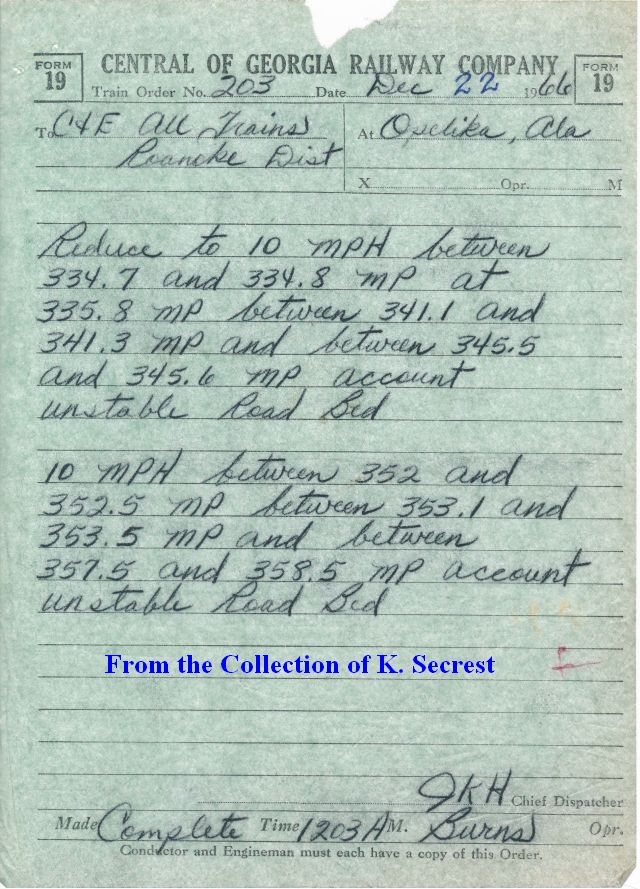 FORM 19 CENTRAL OF GEORGIA RAILWAY COMPANY FORM 19
Train Order No. 203 Date Dec 22 1966
To C&E All Trains At Opelika, Ala
Roanoke Dist
X Opr. M
Reduce to 10 MPH between
334.7 and 334.8 MP at
335.8 MP between 341.1 and
341.3 MP and between 345.5
and 345.6 MP account
unstable Road Bed
10 MPH between 352 and
352.5 MP between 353.1 and
353.5 MP and between
357.5 and 358.5 MP account
unstable Road Bed
From the Collection of K. Secrest
JKH Chief Dispatcher
Made Complete Time 1203 A M. Burns Opr.
Conductor and Engineman must each have a copy of this Order.